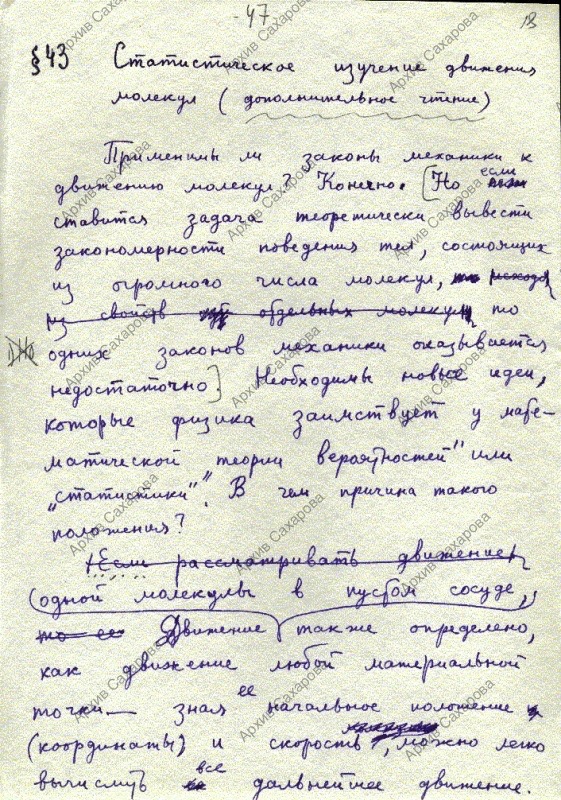 -47
18
§43 Статистическое изучение движения
молекул (дополнительное чтение)
Применимы ли законы механики к
движению молекул? Конечно. [Но если
ставится задача теоретически вывести
закономерности поведения тел, состоящих
из огромного числа молекул, то исходя
из свойств отдельных молекул, то
одних законов механики оказывается
недостаточно] Необходимы новые идеи,
которые физика заимствует у мате-
матической теории вероятностей" или
"статистики". В чем причина такого
положения?
Если рассматривать движение
(одной молекулы в пустом сосуде,
то ее Движение также определено,
как движение любой материальной
точки — зная ее начальное положение
(координаты) и скорость, можно легко
вычислить все дальнейшее движение.
Архив Сахарова